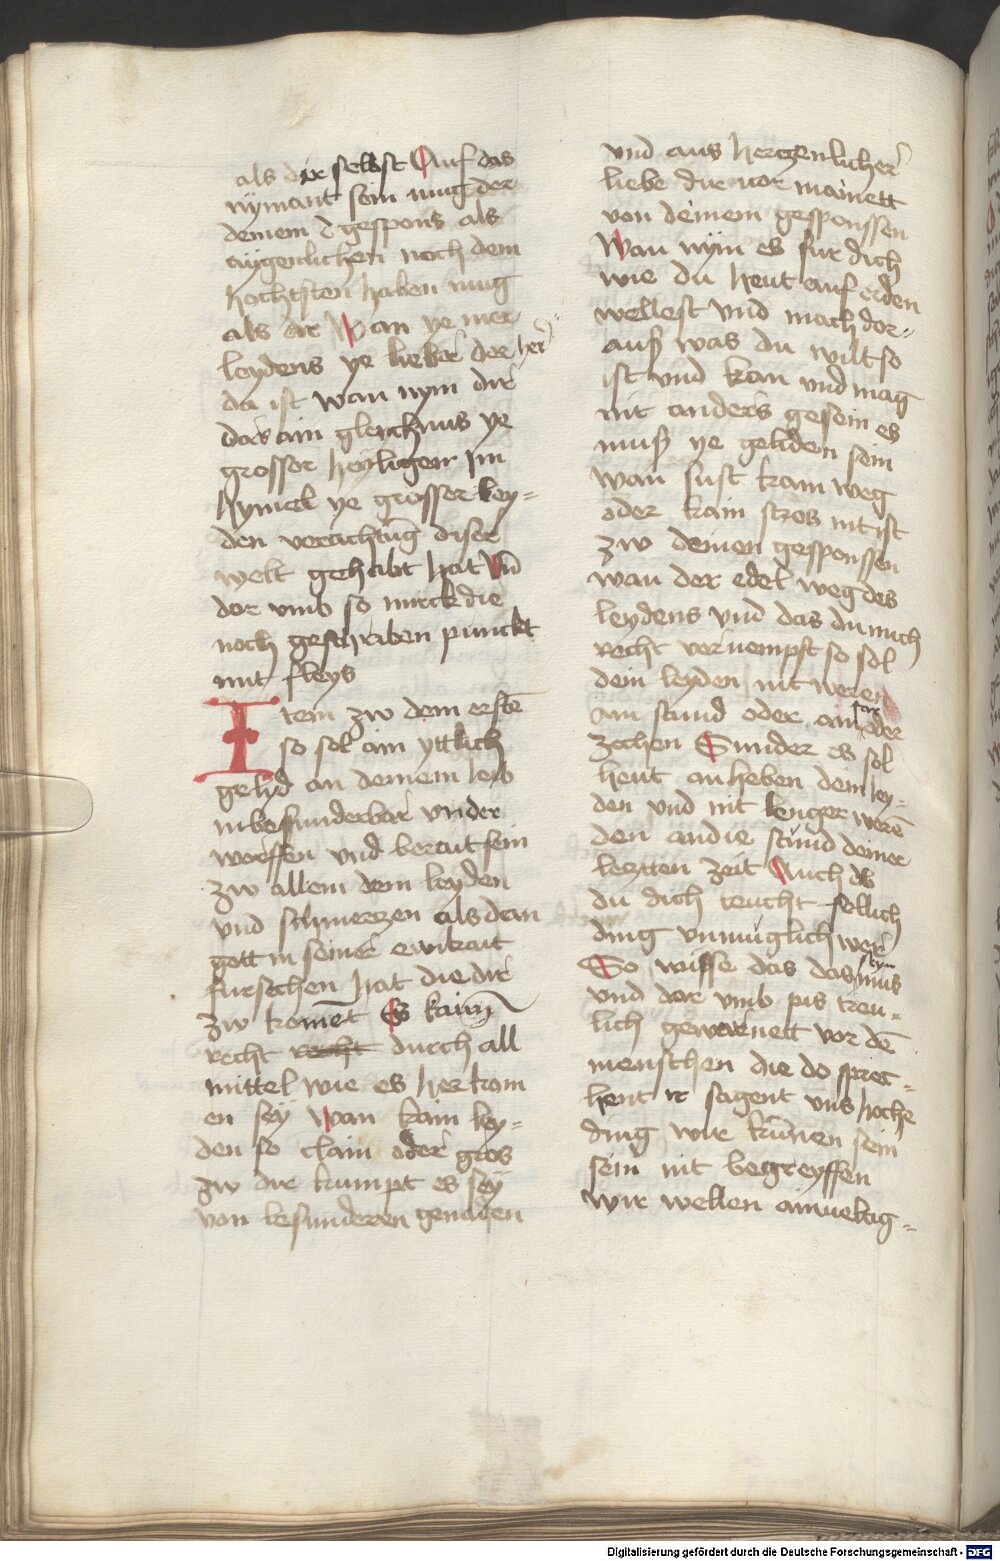 als dir selbst Auf das
nymant sein mug der
deinem gespons als
aygenlichen noch dem
hochtsten haben mug
als dir Wan ye mer
leydens ye lieber der her
da ist wan nym dir
dar ain gleychnus ye
grosser heyliger Im
hymel ye grosser ley=
den verachtung diser
welt gehabt hat Vn̄
dor vmb so mirck die
noch geschriben punckt
mit fleys
Item zw dem erstē
so sol ain yttlich
gelyd an deinem leyb
inbesunderhar vnder
worffen vnd berait sein
zw allem dem leyden
vnd schmerczen als dan
gott in seiner ewikait
fursechen hat die dir
zw komēt Es kaim
recht recht durch all
mittel wie es her kom
en sey Wan kain ley=
den so clain oder gros
zw dir kumpt es sey
von besunderen genaden
vnd aus herczenlicher
liebe dir vor mainett
von deinem gesponssen
Wan nym es fur dich
wie du heut auf erden
wellest vnd mach dor=
auß was du wilt so
ist vnd kan vnd mag
nit anders gesein es
muß ye geliden sein
wan sust kain weg
oder kain stros nit ist
zw deinen gesponssen
wan der edel weg des
leydens vnd das du mich
recht vernempst so sol
dein leyden nit weren
ain stund oder ain jar oder
zechen Sunder es sol
heut an heben dein ley=
den vnd nit lenger werē
den an die stund deiner
leczten zeit Auch ds
du dich teucht sollich
ding vnmuglich wer
So wisse das das sein mus
vnd dor vmb pis treu=
lich gewarnett vor dē
menschen die do sprec=
hent ir sagent vns hoche
ding wir kunnen sein
sein nit begreyffen
wir wellen ainueltig=
Digitalisierung gefördert durch die Deutsche Forschungsgemeinschaft - DFG